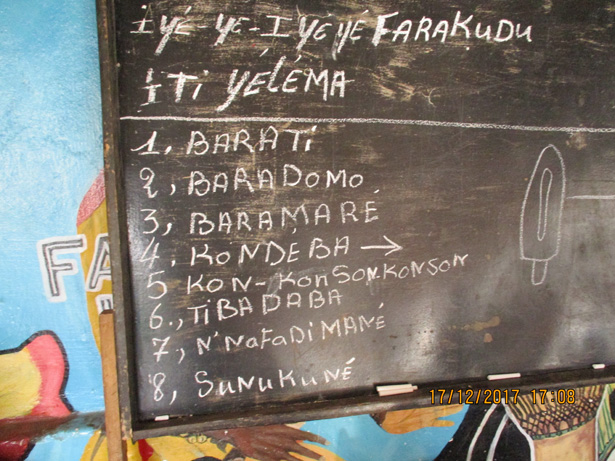 İYÉ-YE-I YÉYÉ FARAKUDU
İTİ YÉLÉMA
1, BARATi
2, BARADOMO
3, BARAMARÉ
4, KONDEBA →
5 KON-KONSONKONSON
6., TiBADABA
7, N'NAFADIMANÉ
8, SUNUKUNÉ
FA
17/12/2017 17:08